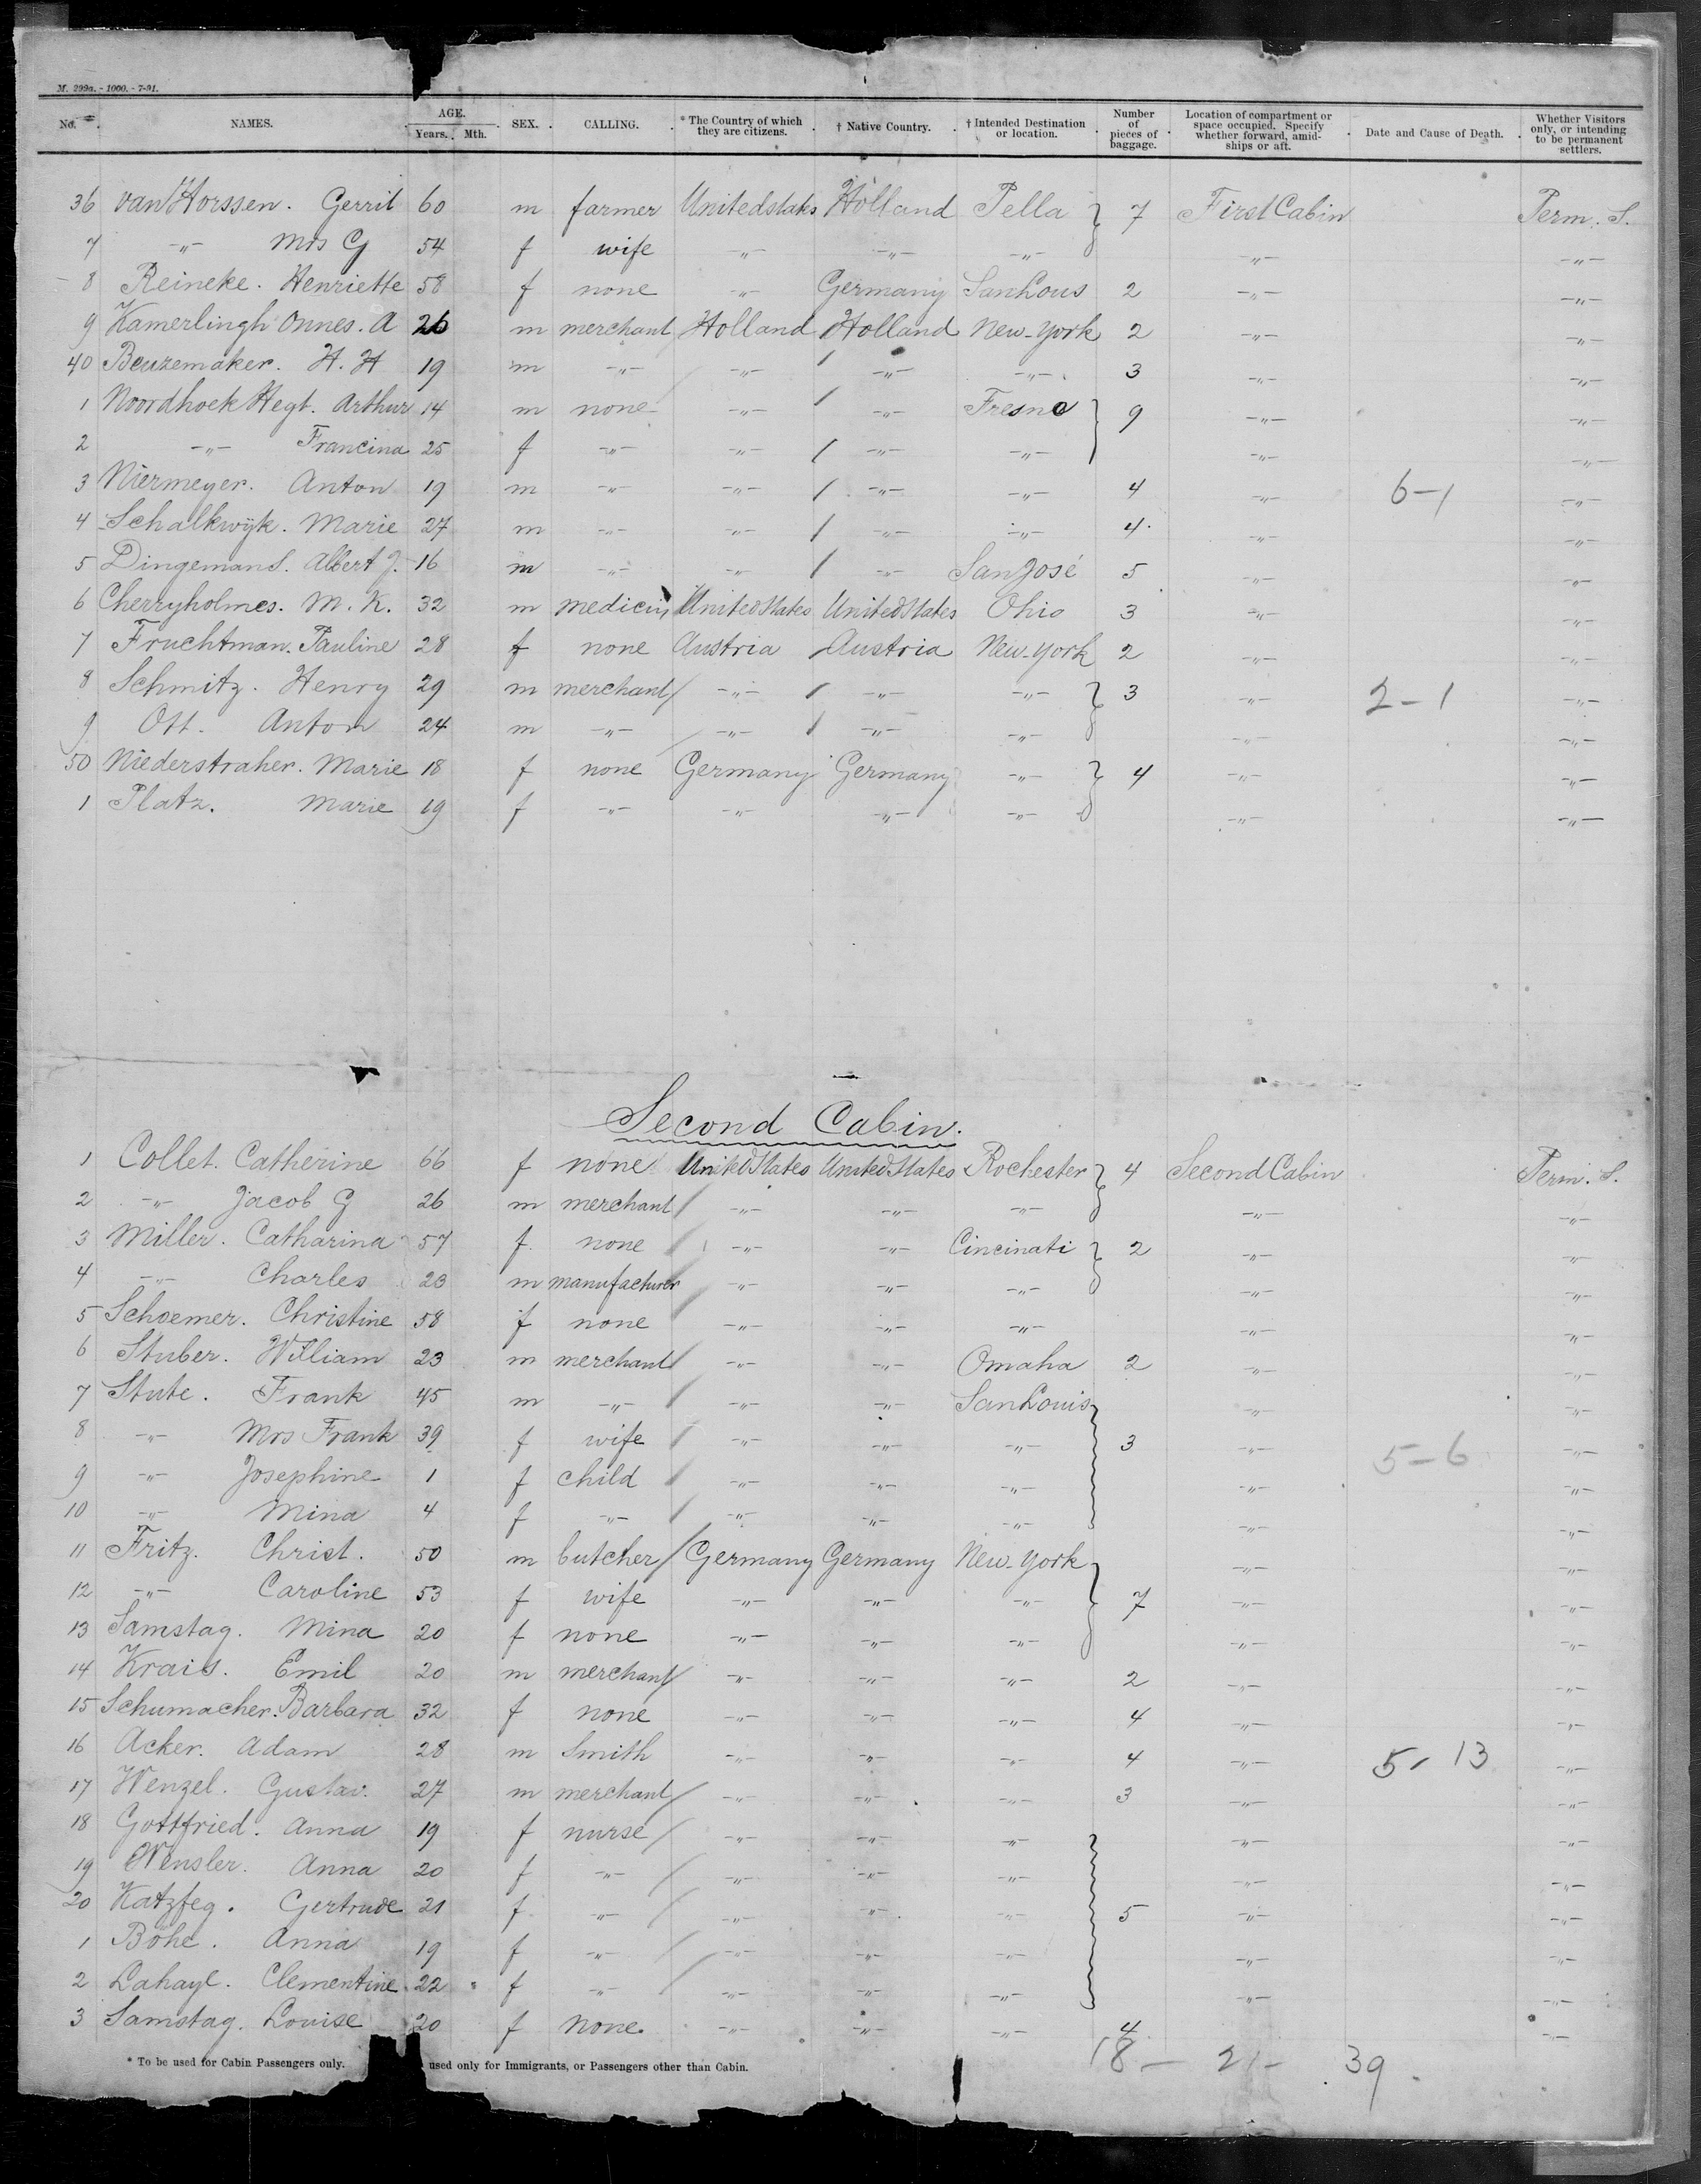 M. 299a. - 1000. - 7-91.
No. NAMES. AGE. Years. Mth. SEX. CALLING. * The Country of which they are citizens. † Native Country. † Intended Destination or location. Number of pieces of baggage. Location of compartment or space occupied. Specify whether forward, amidships or aft. Date and Cause of Death. Whether Visitors only, or intending to be permanent settlers.
36 van Horssen. Gerrit 60 m farmer United states Holland Pella 7 First Cabin Perm. S.
7 -"- Mrs G 54 f wife -"- -"- -"- -"- -"-
8 Reineke. Henriette 58 f none -"- Germany San Lous 2 -"- -"-
9 Kamerlingh Onnes. A 26 m merchant Holland Holland New-York 2 -"- -"-
40 Beuzemaker. H. H 19 m -"- -"- -"- -"- 3 -"- -"-
1 Noordhoek Hegt. Arthur 14 m none -"- -"- Fresno 9 -"- -"-
2 -"- Francina 25 f -"- -"- -"- -"- -"- -"-
3 Niermeyer. Anton 19 m -"- -"- -"- -"- 4 -"- 6-1 -"-
4 Schalkwijk. Marie 27 m -"- -"- -"- -"- 4 -"- -"-
5 Dingemans. Albert J. 16 m -"- -"- -"- San José 5 -"- -"-
6 Cherryholmes. M. K. 32 m medicin United States United States Ohio 3 -"- -"-
7 Fruchtman. Pauline 28 f none Austria Austria New-York 2 -"- -"-
8 Schmitz. Henry 29 m merchant -"- -"- -"- 3 -"- 2-1 -"-
9 Ott. Anton 24 m -"- -"- -"- -"- -"- -"-
50 Niederstraher. Marie 18 f none Germany Germany -"- 4 -"- -"-
1 Platz. Marie 19 f -"- -"- -"- -"- -"- -"-
Second Cabin.
1 Collet. Catherine 66 f none United States United States Rochester 4 Second Cabin Perm. S.
2 -"- Jacob G 26 m merchant -"- -"- -"- -"- -"-
3 Miller. Catharina 57 f none -"- -"- Cincinati 2 -"- -"-
4 -"- Charles 23 m manufacturer -"- -"- -"- -"- -"-
5 Schoemer. Christine 58 f none -"- -"- -"- -"- -"-
6 Stuber. William 23 m merchant -"- -"- Omaha 2 -"- -"-
7 Stute. Frank 45 m -"- -"- -"- San Louis -"- -"-
8 -"- Mrs Frank 39 f wife -"- -"- -"- 3 -"- 5-6 -"-
9 -"- Josephine 1 f child -"- -"- -"- -"- -"-
10 -"- Mina 4 f -"- -"- -"- -"- -"- -"-
11 Fritz. Christ. 50 m butcher Germany Germany New-York -"- -"-
12 -"- Caroline 53 f wife -"- -"- -"- 7 -"- -"-
13 Samstag. Mina 20 f none -"- -"- -"- -"- -"-
14 Krais. Emil 20 m merchant -"- -"- -"- 2 -"- -"-
15 Schumacher. Barbara 32 f none -"- -"- -"- 4 -"- -"-
16 Acker. Adam 28 m Smith -"- -"- -"- 4 -"- 5-13 -"-
17 Wenzel. Gustav. 27 m merchant -"- -"- -"- 3 -"- -"-
18 Gottfried. Anna 19 f nurse -"- -"- -"- -"- -"-
19 Wensler. Anna 20 f -"- -"- -"- -"- -"- -"-
20 Katzfeg. Gertrude 21 f -"- -"- -"- -"- 5 -"- -"-
1 Bohe. Anna 19 f -"- -"- -"- -"- -"- -"-
2 Lahaye. Clementine 22 f -"- -"- -"- -"- -"- -"-
3 Samstag. Louise 20 f none. -"- -"- -"- 4 -"-
18 - 21 - 39
* To be used for Cabin Passengers only. used only for Immigrants, or Passengers other than Cabin.